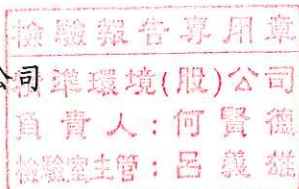 檢驗報告專用章
公司
準環境(股)公司
負責人：何賢德
檢驗室主管：呂義雄